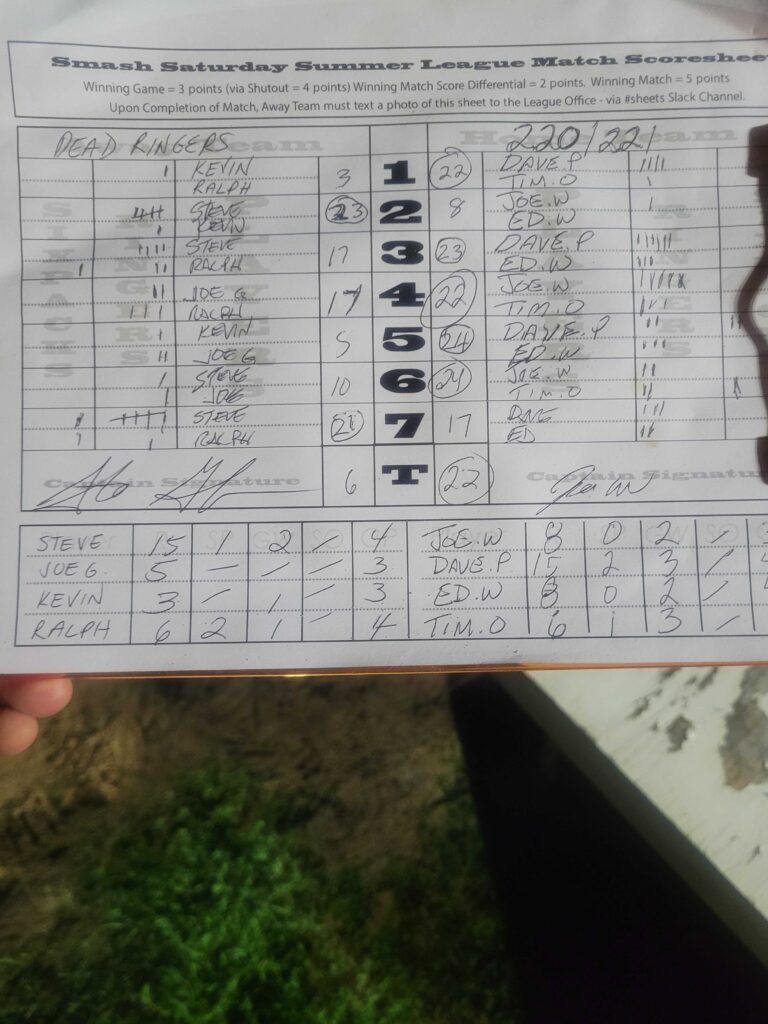 Smash Saturday Summer League Match Scoreshee
Winning Game = 3 points (via Shutout = 4 points) Winning Match Score Differential = 2 points. Winning Match = 5 points
Upon Completion of Match, Away Team must text a photo of this sheet to the League Office - via #sheets Slack Channel.
DEAD RINGERS 220/221
KEVIN 3 1 22 DAVE.P
RALPH TIM.O
STEVE 23 2 8 JOE.W
KEVIN ED.W
STEVE 17 3 23 DAVE.P
RALPH ED.W
JOE G 17 4 22 JOE.W
RALPH TIM.O
KEVIN 5 5 24 DAVE.P
JOE G ED.W
STEVE 10 6 24 JOE.W
JOE TIM.O
STEVE 21 7 17 DAVE
RALPH ED
6 T 22
Captain Signature Captain Signature
STEVE 15 1 2 / 4 JOE.W 8 0 2 /
JOE G. 5 – / / 3 DAVE.P 15 2 3 /
KEVIN 3 / 1 / 3 ED.W 8 0 2 /
RALPH 6 2 1 / 4 TIM.O 6 1 3 /